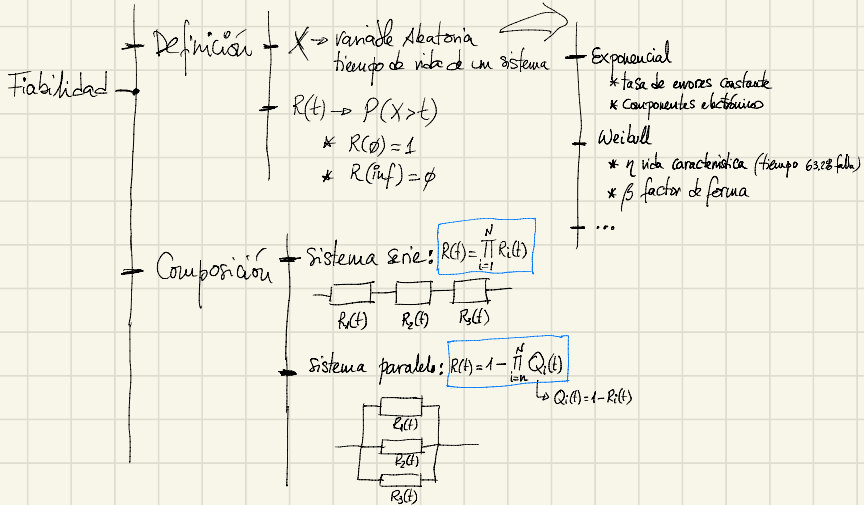 Fiabilidad
Definición
X → variable Aleatoria
tiempo de vida de un sistema
R(t) → P(X>t)
* R(ø)=1
* R(inf)=ø
Exponencial
* tasa de errores constante
* componentes electrónicos
Weibull
* η vida característica (tiempo 63,2% falla)
* β factor de forma
...
Composición
Sistema serie: R(t)=∏ᵢ₌₁ᴺ Rᵢ(t)
R₁(t) R₂(t) R₃(t)
Sistema paralelo: R(t)=1-∏ᵢ₌ₙᴺ Qᵢ(t)
↳ Qᵢ(t)=1-Rᵢ(t)
R₁(t)
R₂(t)
R₃(t)